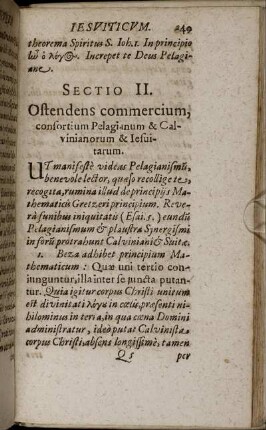 IESVITICVM. 249
theorema Spiritus S. Ioh.1. In principio
ὁ λόγος. Increpet te Deus Pelagi-
ane.
SECTIO II.
Ostendens commercium,
consortium Pelagianum & Cal-
vinianorum & Iesui-
tarum.
UT manifestè videas Pelagianismū,
benevole lector, quæso recollige te,
recogita, rumina illud de principijs Ma-
thematicū Gretzeri principium. Reve-
rà funibus iniquitatis (Esai.5.) eundū
Pelagianismum & plaustra Synergismi
in forū protrahunt Calviniani & Suitæ.
1. Beza adhibet principium Ma-
thematicum: Quæ uni tertio con-
iunguntur, illa inter se juncta putan-
tur. Quia igitur corpus Christi unitum
est divinitati λόγȣ in cœlis, præsenti ni-
hilominus in terra, in qua cœna Domini
administratur, ideò putat Calvinista
corpus Christi, absens longissimè, tamen
Q 5 per